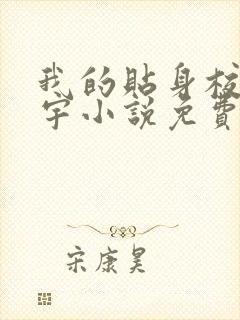 我的貼身校
宇小說免費
宋康昊